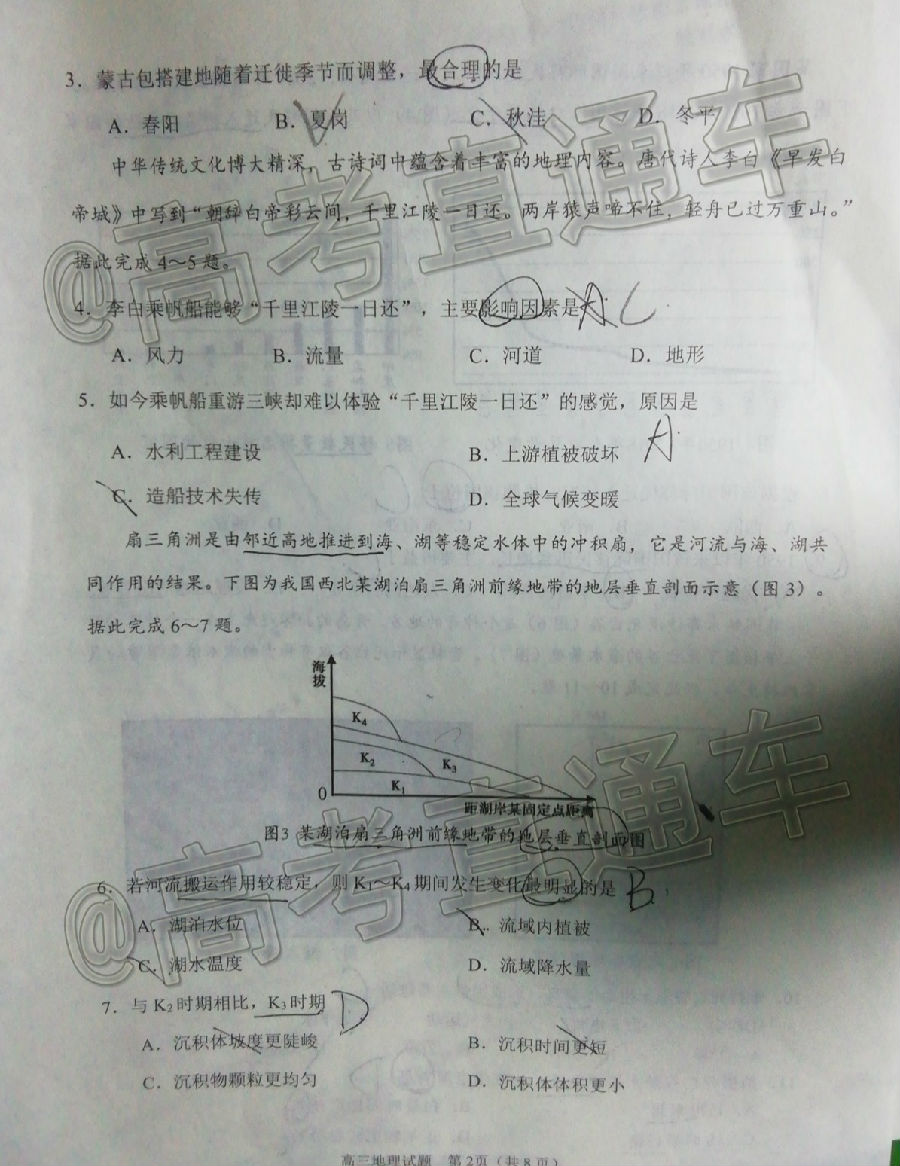 3．蒙古包搭建地随着迁徙季节而调整，最合理的是
A．春阳 B．夏岗 C．秋洼 D．冬平
中华传统文化博大精深，古诗词中蕴含着丰富的地理内容。唐代诗人李白《早发白
帝城》中写到“朝辞白帝彩云间，千里江陵一日还。两岸猿声啼不住，轻舟已过万重山。”
据此完成4～5题。
4．李白乘帆船能够“千里江陵一日还”，主要影响因素是 A C
A．风力 B．流量 C．河道 D．地形
5．如今乘帆船重游三峡却难以体验“千里江陵一日还”的感觉，原因是
A．水利工程建设 B．上游植被破坏 A
C．造船技术失传 D．全球气候变暖
扇三角洲是由邻近高地推进到海、湖等稳定水体中的冲积扇，它是河流与海、湖共
同作用的结果。下图为我国西北某湖泊扇三角洲前缘地带的地层垂直剖面示意（图3）。
据此完成6～7题。
海拔
K4
K2 K3
K1
0
距湖岸某固定点距离
图3 某湖泊扇三角洲前缘地带的地层垂直剖面图
6．若河流搬运作用较稳定，则K1～K4期间发生变化最明显的是 B
A．湖泊水位 B．流域内植被
C．湖水温度 D．流域降水量
7．与K2时期相比，K3时期 D
A．沉积体坡度更陡峻 B．沉积时间更短
C．沉积物颗粒更均匀 D．沉积体体积更小
高三地理试题 第2页（共8页）
@高考直通车
@高考直通车